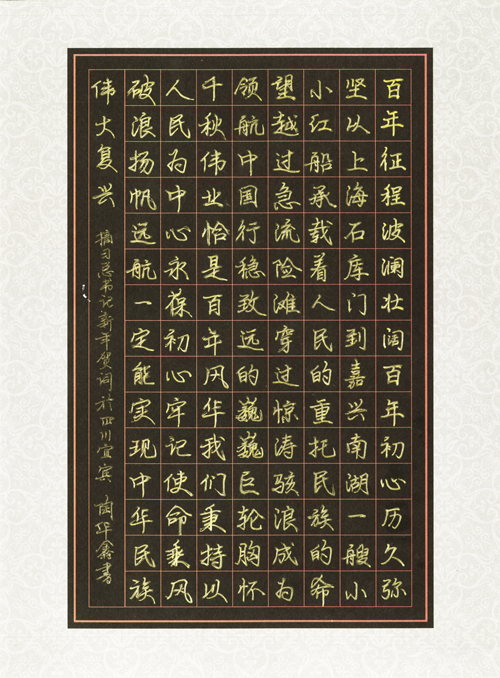 百年征程波澜壮阔百年初心历久弥
坚从上海石库门到嘉兴南湖一艘小
小红船承载着人民的重托民族的希
望越过急流险滩穿过惊涛骇浪成为
领航中国行稳致远的巍巍巨轮胸怀
千秋伟业恰是百年风华我们秉持以
人民为中心永葆初心牢记使命乘风
破浪扬帆远航一定能实现中华民族
伟大复兴 摘习总书记新年贺词於四川宜宾 陶华鑫书